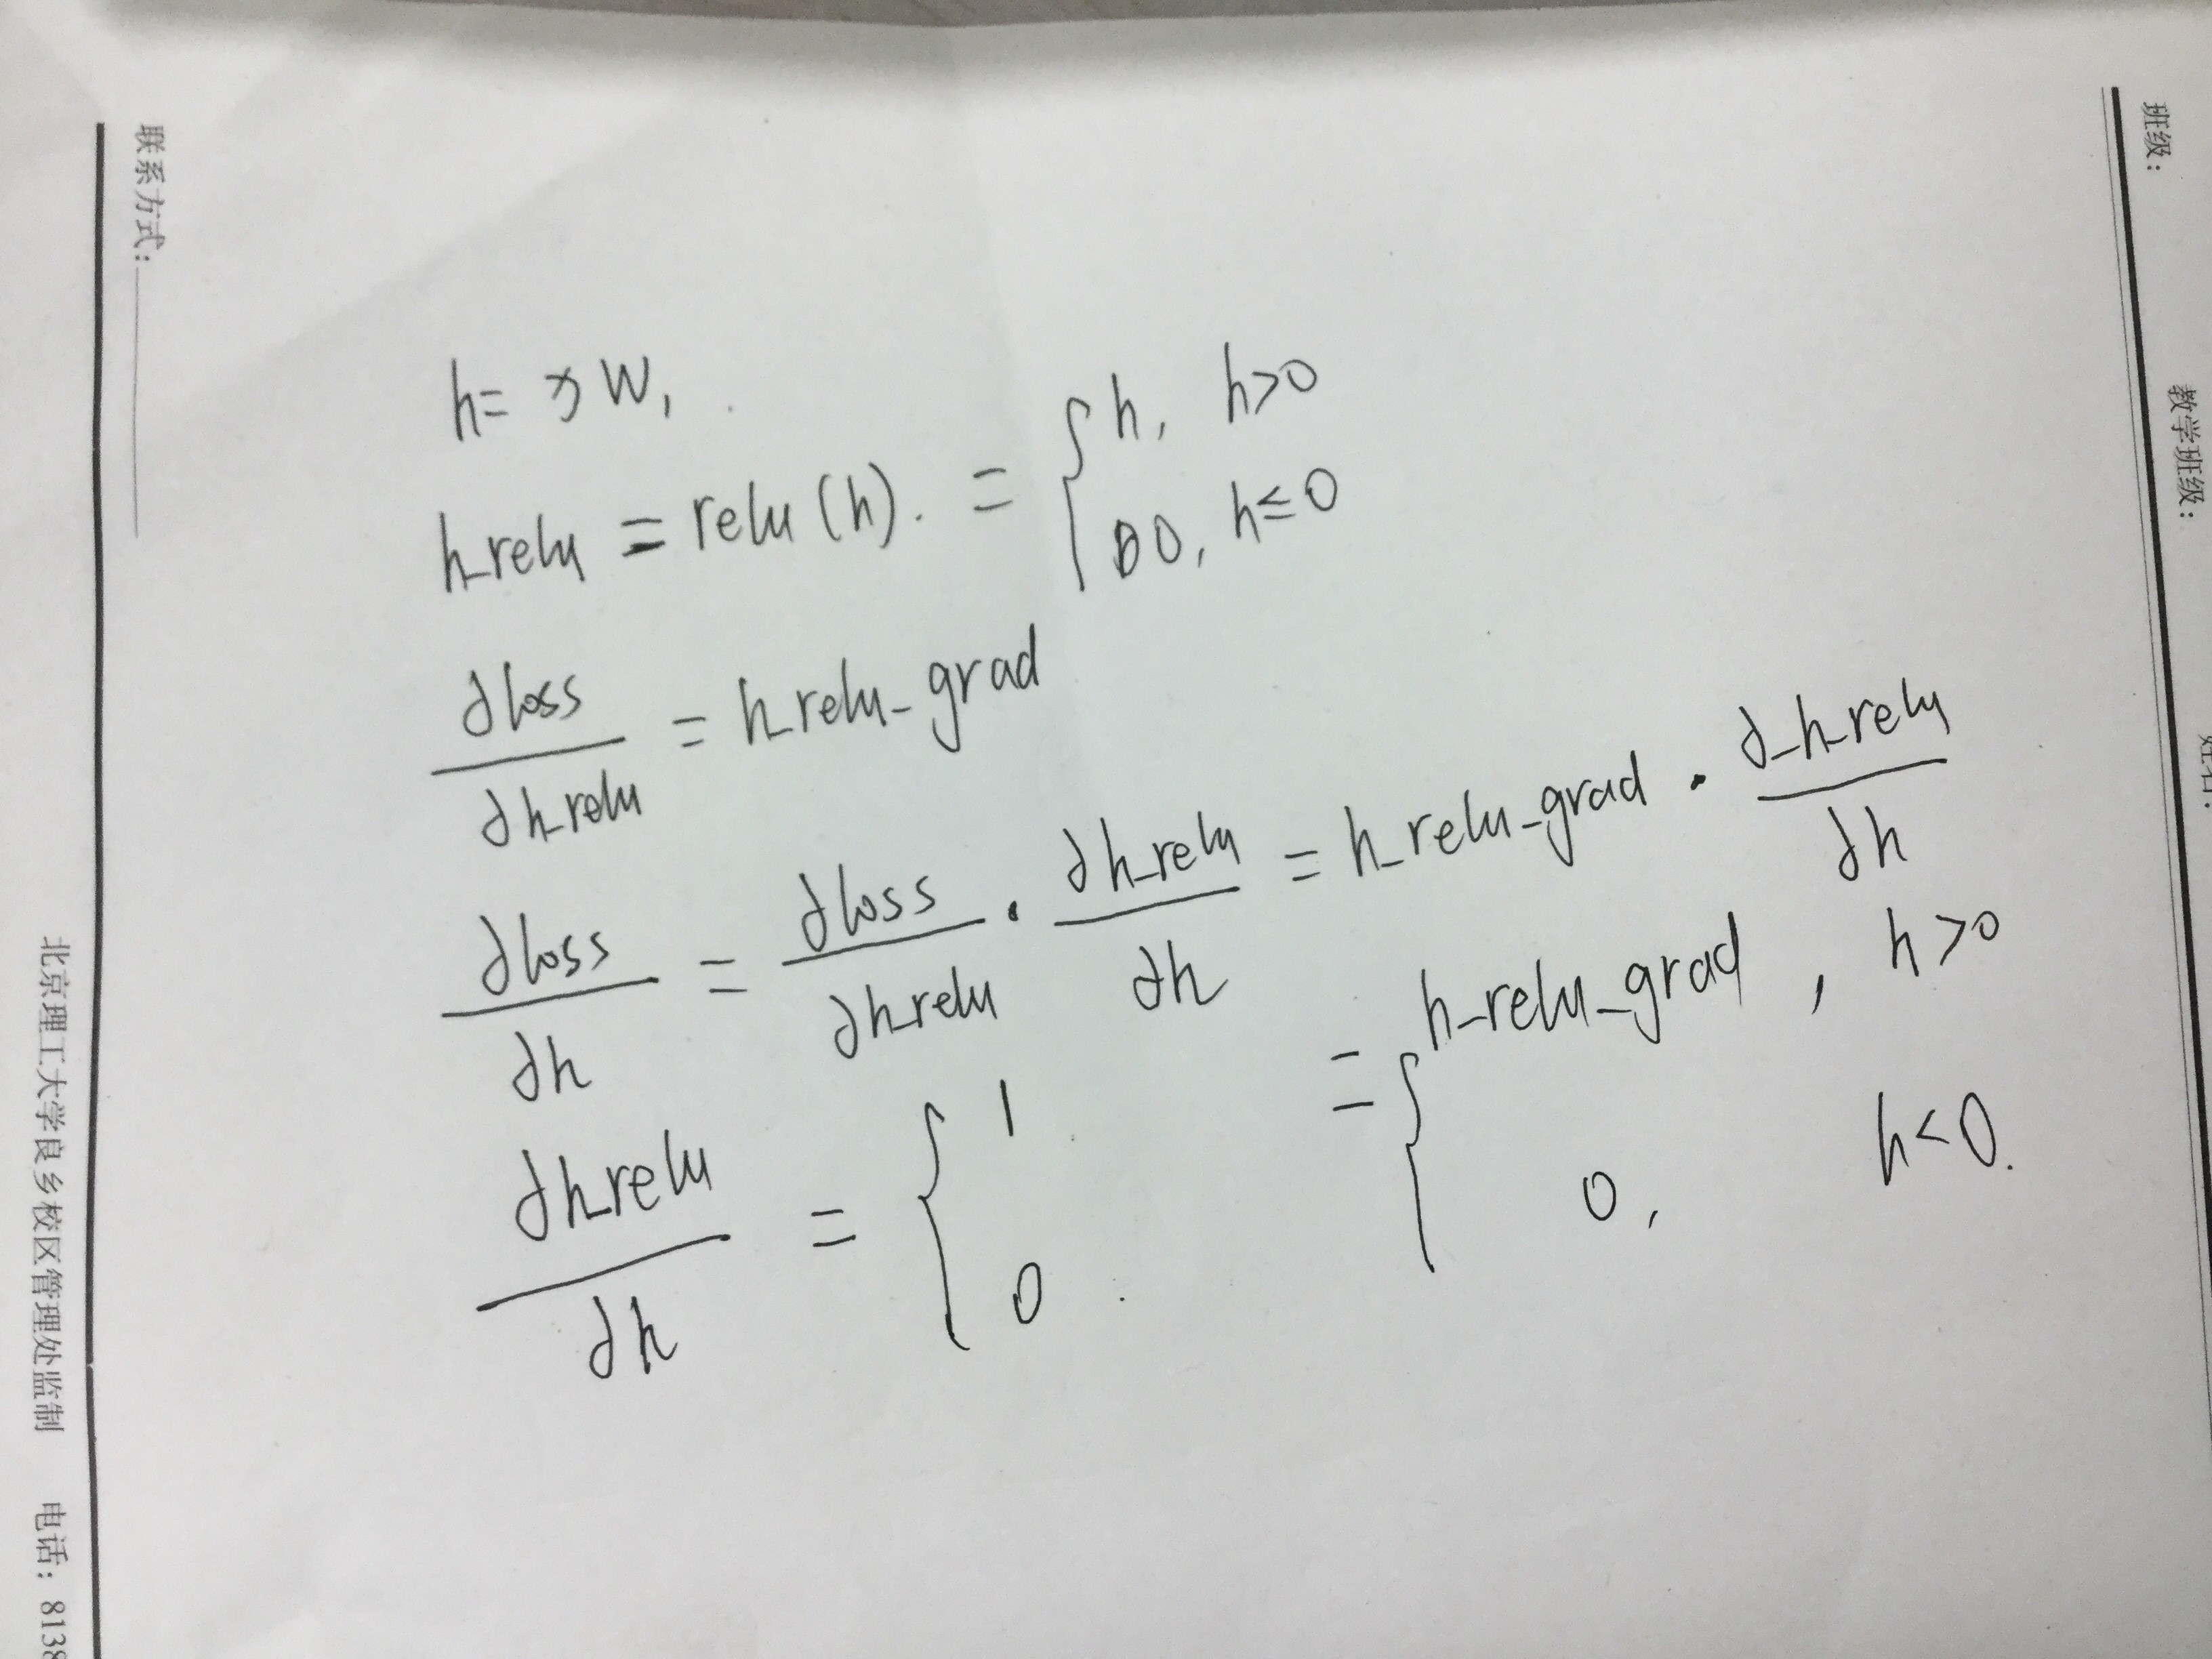 班级：
教学班级：
联系方式：
h = x W₁
h_relu = relu (h). = { h, h>0
0, h≤0
∂loss / ∂h_relu = h_relu_grad
∂loss / ∂h = ∂loss / ∂h_relu · ∂h_relu / ∂h = h_relu_grad · ∂_h_relu / ∂h
= { h_relu_grad, h>0
0, h<0.
∂h_relu / ∂h = { 1
0
北京理工大学良乡校区管理处监制 电话：8138